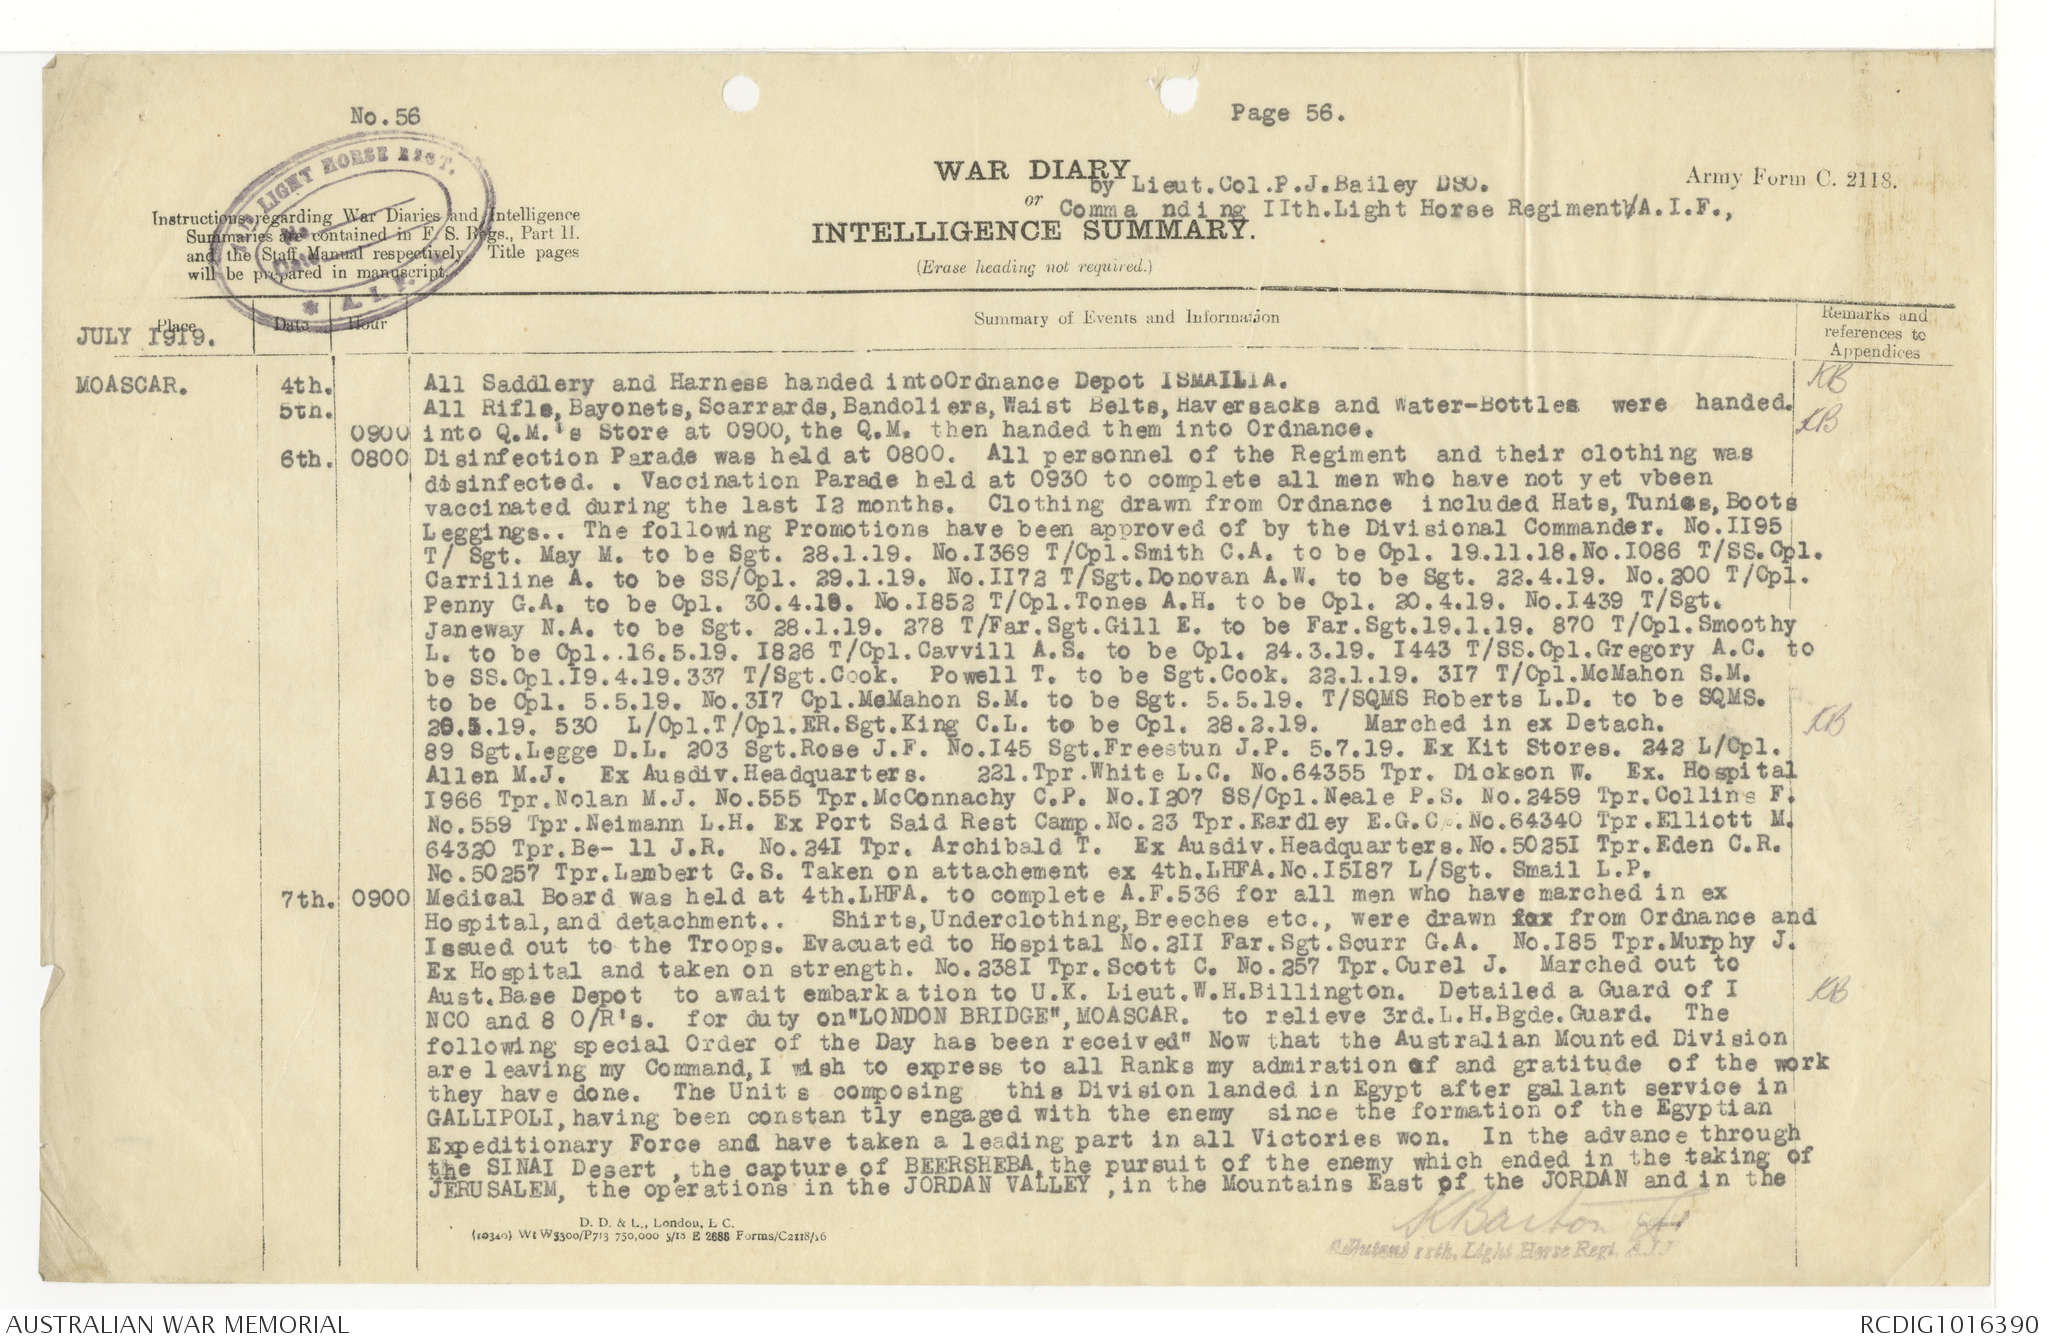 No.56
Page 56.
LIGHT HORSE REGT.
A.I.F.
WAR DIARY
by Lieut.Col.P.J.Bailey DSO.
or
Comma nding IIth.Light Horse Regiment/A.I.F.,
INTELLIGENCE SUMMARY.
(Erase heading not required.)
Army Form C. 2118.
Instructions regarding War Diaries and Intelligence
Summaries are contained in F. S. Regs., Part II.
and the Staff Manual respectively. Title pages
will be prepared in manuscript.
Place Date Hour Summary of Events and Information Remarks and
references to
Appendices
JULY I9I9.
MOASCAR. 4th. All Saddlery and Harness handed intoOrdnance Depot ISMAILIA. KB
5th. All Rifle,Bayonets,Scarrards,Bandoliers,Waist Belts,Haversacks and Water-Bottles were handed.
0900 into Q.M.'s Store at 0900,the Q.M. then handed them into Ordnance. KB
6th. 0800 Disinfection Parade was held at 0800. All personnel of the Regiment and their clothing was
disinfected. . Vaccination Parade held at 0930 to complete all men who have not yet vbeen
vaccinated during the last I2 months. Clothing drawn from Ordnance included Hats,Tunics,Boots
Leggings.. The following Promotions have been approved of by the Divisional Commander. No.II95
T/ Sgt. May M. to be Sgt. 28.1.19. No.I369 T/Cpl.Smith C.A. to be Cpl. 19.11.18.No.I086 T/SS.Cpl.
Carriline A. to be SS/Cpl. 29.1.19. No.II72 T/Sgt.Donovan A.W. to be Sgt. 22.4.19. No.200 T/Cpl.
Penny G.A. to be Cpl. 30.4.19. No.I852 T/Cpl.Tones A.H. to be Cpl. 20.4.19. No.I439 T/Sgt.
Janeway N.A. to be Sgt. 28.1.19. 278 T/Far.Sgt.Gill E. to be Far.Sgt.19.1.19. 870 T/Cpl.Smoothy
L. to be Cpl..16.5.19. I826 T/Cpl.Cavvill A.S. to be Cpl. 24.3.19. I443 T/SS.Cpl.Gregory A.C. to
be SS.Cpl.I9.4.19.337 T/Sgt.Cook. Powell T. to be Sgt.Cook. 22.1.19. 3I7 T/Cpl.McMahon S.M.
to be Cpl. 5.5.19. No.3I7 Cpl.McMahon S.M. to be Sgt. 5.5.19. T/SQMS Roberts L.D. to be SQMS.
.19. 530 L/Cpl.T/Cpl.ER.Sgt.King C.L. to be Cpl. 28.2.19. Marched in ex Detach. KB
89 Sgt.Legge D.L. 203 Sgt.Rose J.F. No.I45 Sgt.Freestun J.P. 5.7.19. Ex Kit Stores. 242 L/Cpl.
Allen M.J. Ex Ausdiv.Headquarters. 221.Tpr.White L.C. No.64355 Tpr. Dickson W. Ex. Hospital
I966 Tpr.Nolan M.J. No.555 Tpr.McConnachy C.P. No.I207 SS/Cpl.Neale P.S. No.2459 Tpr.Collins F.
No.559 Tpr.Neimann L.H. Ex Port Said Rest Camp.No.23 Tpr.Eardley E.G.C .No.64340 Tpr.Elliott M.
64320 Tpr.Be- ll J.R. No.24I Tpr. Archibald T. Ex Ausdiv.Headquarters.No.5025I Tpr.Eden C.R.
No.50257 Tpr.Lambert G.S. Taken on attachement ex 4th.LHFA.No.I5I87 L/Sgt. Smail L.P.
7th. 0900 Medical Board was held at 4th.LHFA. to complete A.F.536 for all men who have marched in ex
Hospital,and detachment.. Shirts,Underclothing,Breeches etc., were drawn fox from Ordnance and
Issued out to the Troops. Evacuated to Hospital No.2II Far.Sgt.Scurr G.A. No.I85 Tpr.Murphy J.
Ex Hospital and taken on strength. No.238I Tpr.Scott C. No.257 Tpr.Curel J. Marched out to
Aust.Base Depot to await embarkation to U.K. Lieut.W.H.Billington. Detailed a Guard of I KB
NCO and 8 O/R's. for duty on"LONDON BRIDGE",MOASCAR. to relieve 3rd.L.H.Bgde.Guard. The
following special Order of the Day has been received" Now that the Australian Mounted Division
are leaving my Command,I wish to express to all Ranks my admiration of and gratitude of the work
they have done. The Unit s composing this Division landed in Egypt after gallant service in
GALLIPOLI,having been constan tly engaged with the enemy since the formation of the Egyptian
Expeditionary Force and have taken a leading part in all Victories won. In the advance through
the SINAI Desert ,the capture of BEERSHEBA,the pursuit of the enemy which ended in the taking of
JERUSALEM, the operations in the JORDAN VALLEY ,in the Mountains East of the JORDAN and in the
D. D. & L., London, E C.
(10340) Wt W5300/P713 750,000 3/18 E 2688 Forms/C2118/16
KBarton
Adjutant 11th. Light Horse Regt. A.I.F
AUSTRALIAN WAR MEMORIAL
RCDIG1016390